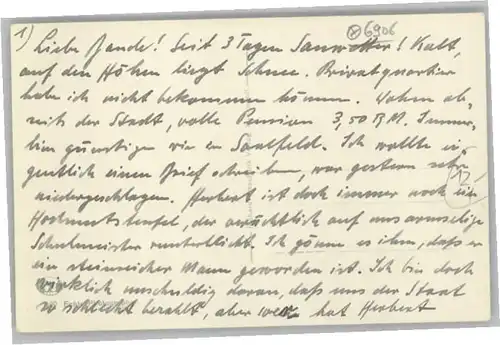 1) Liebe Bande! Seit 3 Tagen Sauwetter! Kalt,
auf den Höhen liegt Schnee. Privatquartier
habe ich nicht bekommen können. Wohne ab-
seits der Stadt, volle Pension 3,50 RM. Immer-
hin günstiger wie in Saalfeld. Ich wollte ei-
gentlich einen Brief schreiben, war gestern sehr
niedergeschlagen. Herbert ist doch immer noch ein
Hochmutsteufel, der verächtlich auf uns armselige
Schulmeister runterblickt. Ich gönne es ihm, daß er
ein steinreicher Mann geworden ist. Ich bin doch
wirklich unschuldig daran, daß uns der Staat
so schlecht bezahlt, aber hat Herbert
6906
12